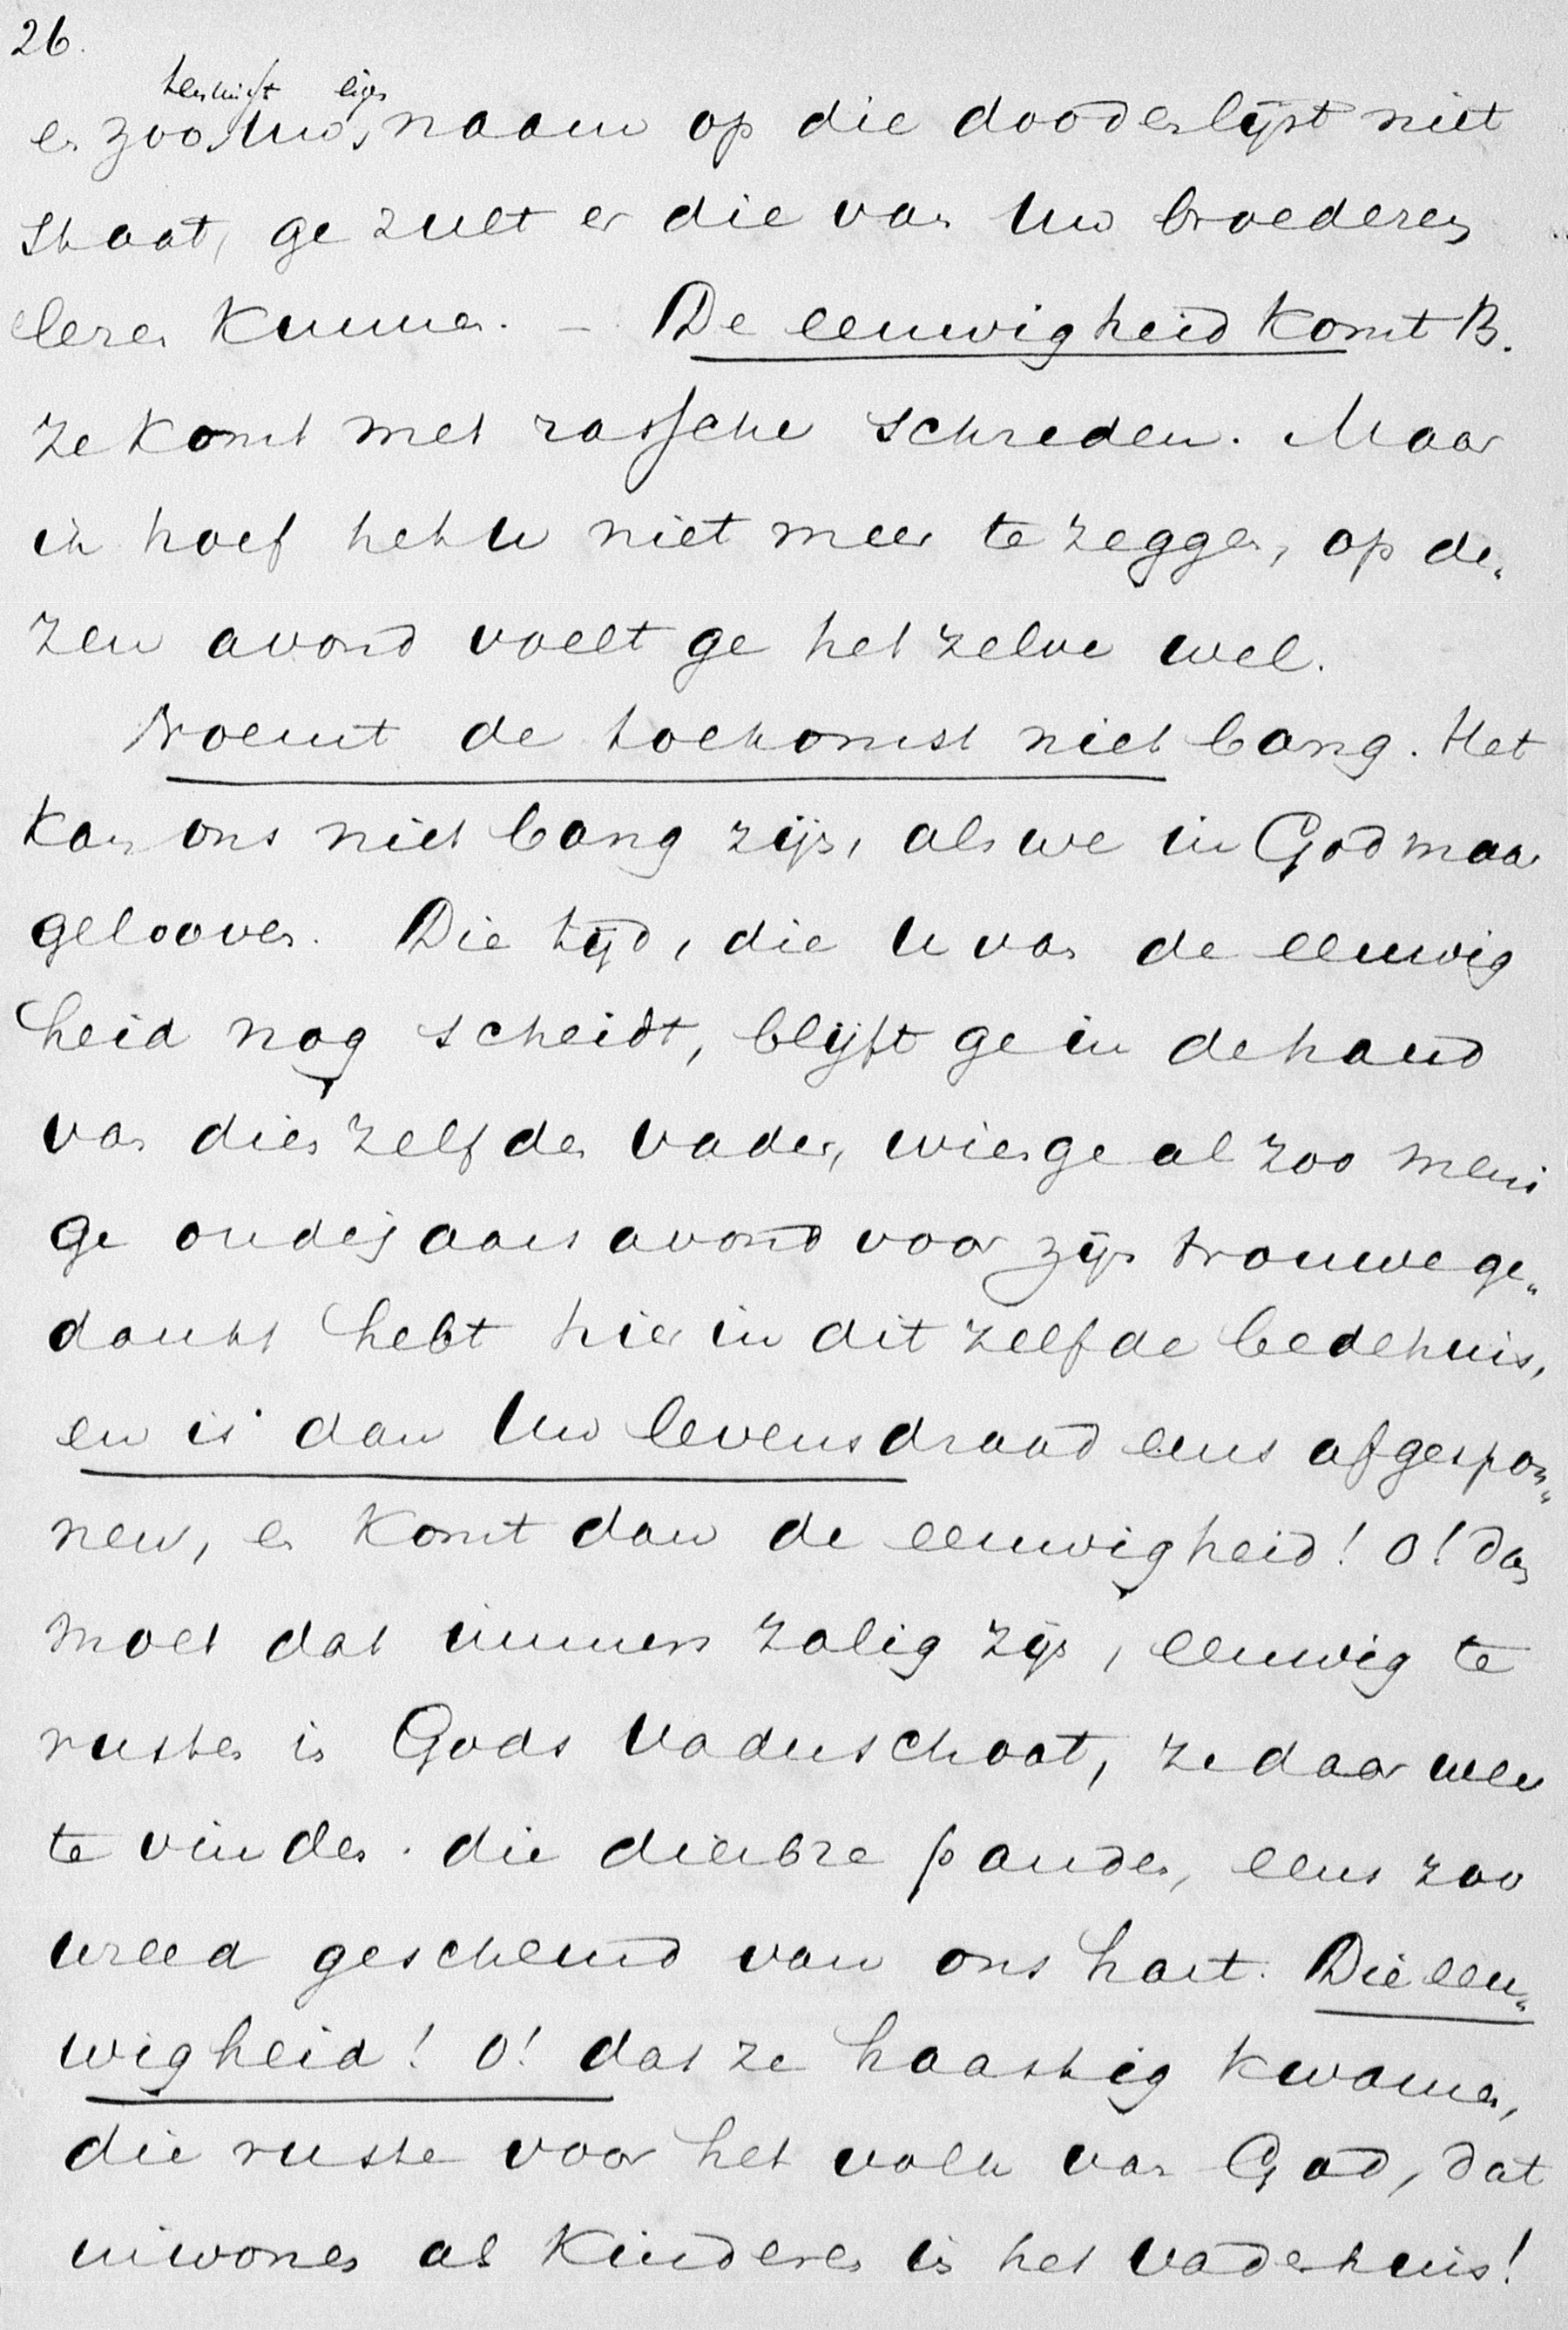 26.
en zoo Uw eigen naam op die doodenlijst niet
staat, ge zult er die van Uw broederen
lezen kunnen. – De eeuwigheid komt B.
ze komt met rassche schreden. Maar
ik hoef het U niet meer te zeggen, op de„
zen avond voelt ge het zelve wel.
Noemt de toekomst niet bang. Het
kan ons niet bang zijn, als we in God maar
gelooven. Die tijd, die U van de eeuwig
heid nog scheidt, blijft ge in de hand
van dien zelfden vader, wien ge al zoo meni
ge oudejaars avond voor zijn trouwe ge„
dankt hebt hier in dit zelfde bedehuis,
en is dan Uw levensdraad eens afgespon„
nen, en komt dan de eeuwigheid! o! dan
moet dat immers zalig zijn, eeuwig te
rusten in Gods Vaderschoot, ze daar weer
te vinden. die dierbre panden, eens zoo
wreed gescheurd van ons hart. Die eeu„
wigheid! o! dat ze haastig kwame,
die ruste voor het volk van God, dat
inwonen als Kinderen in het vaderhuis!